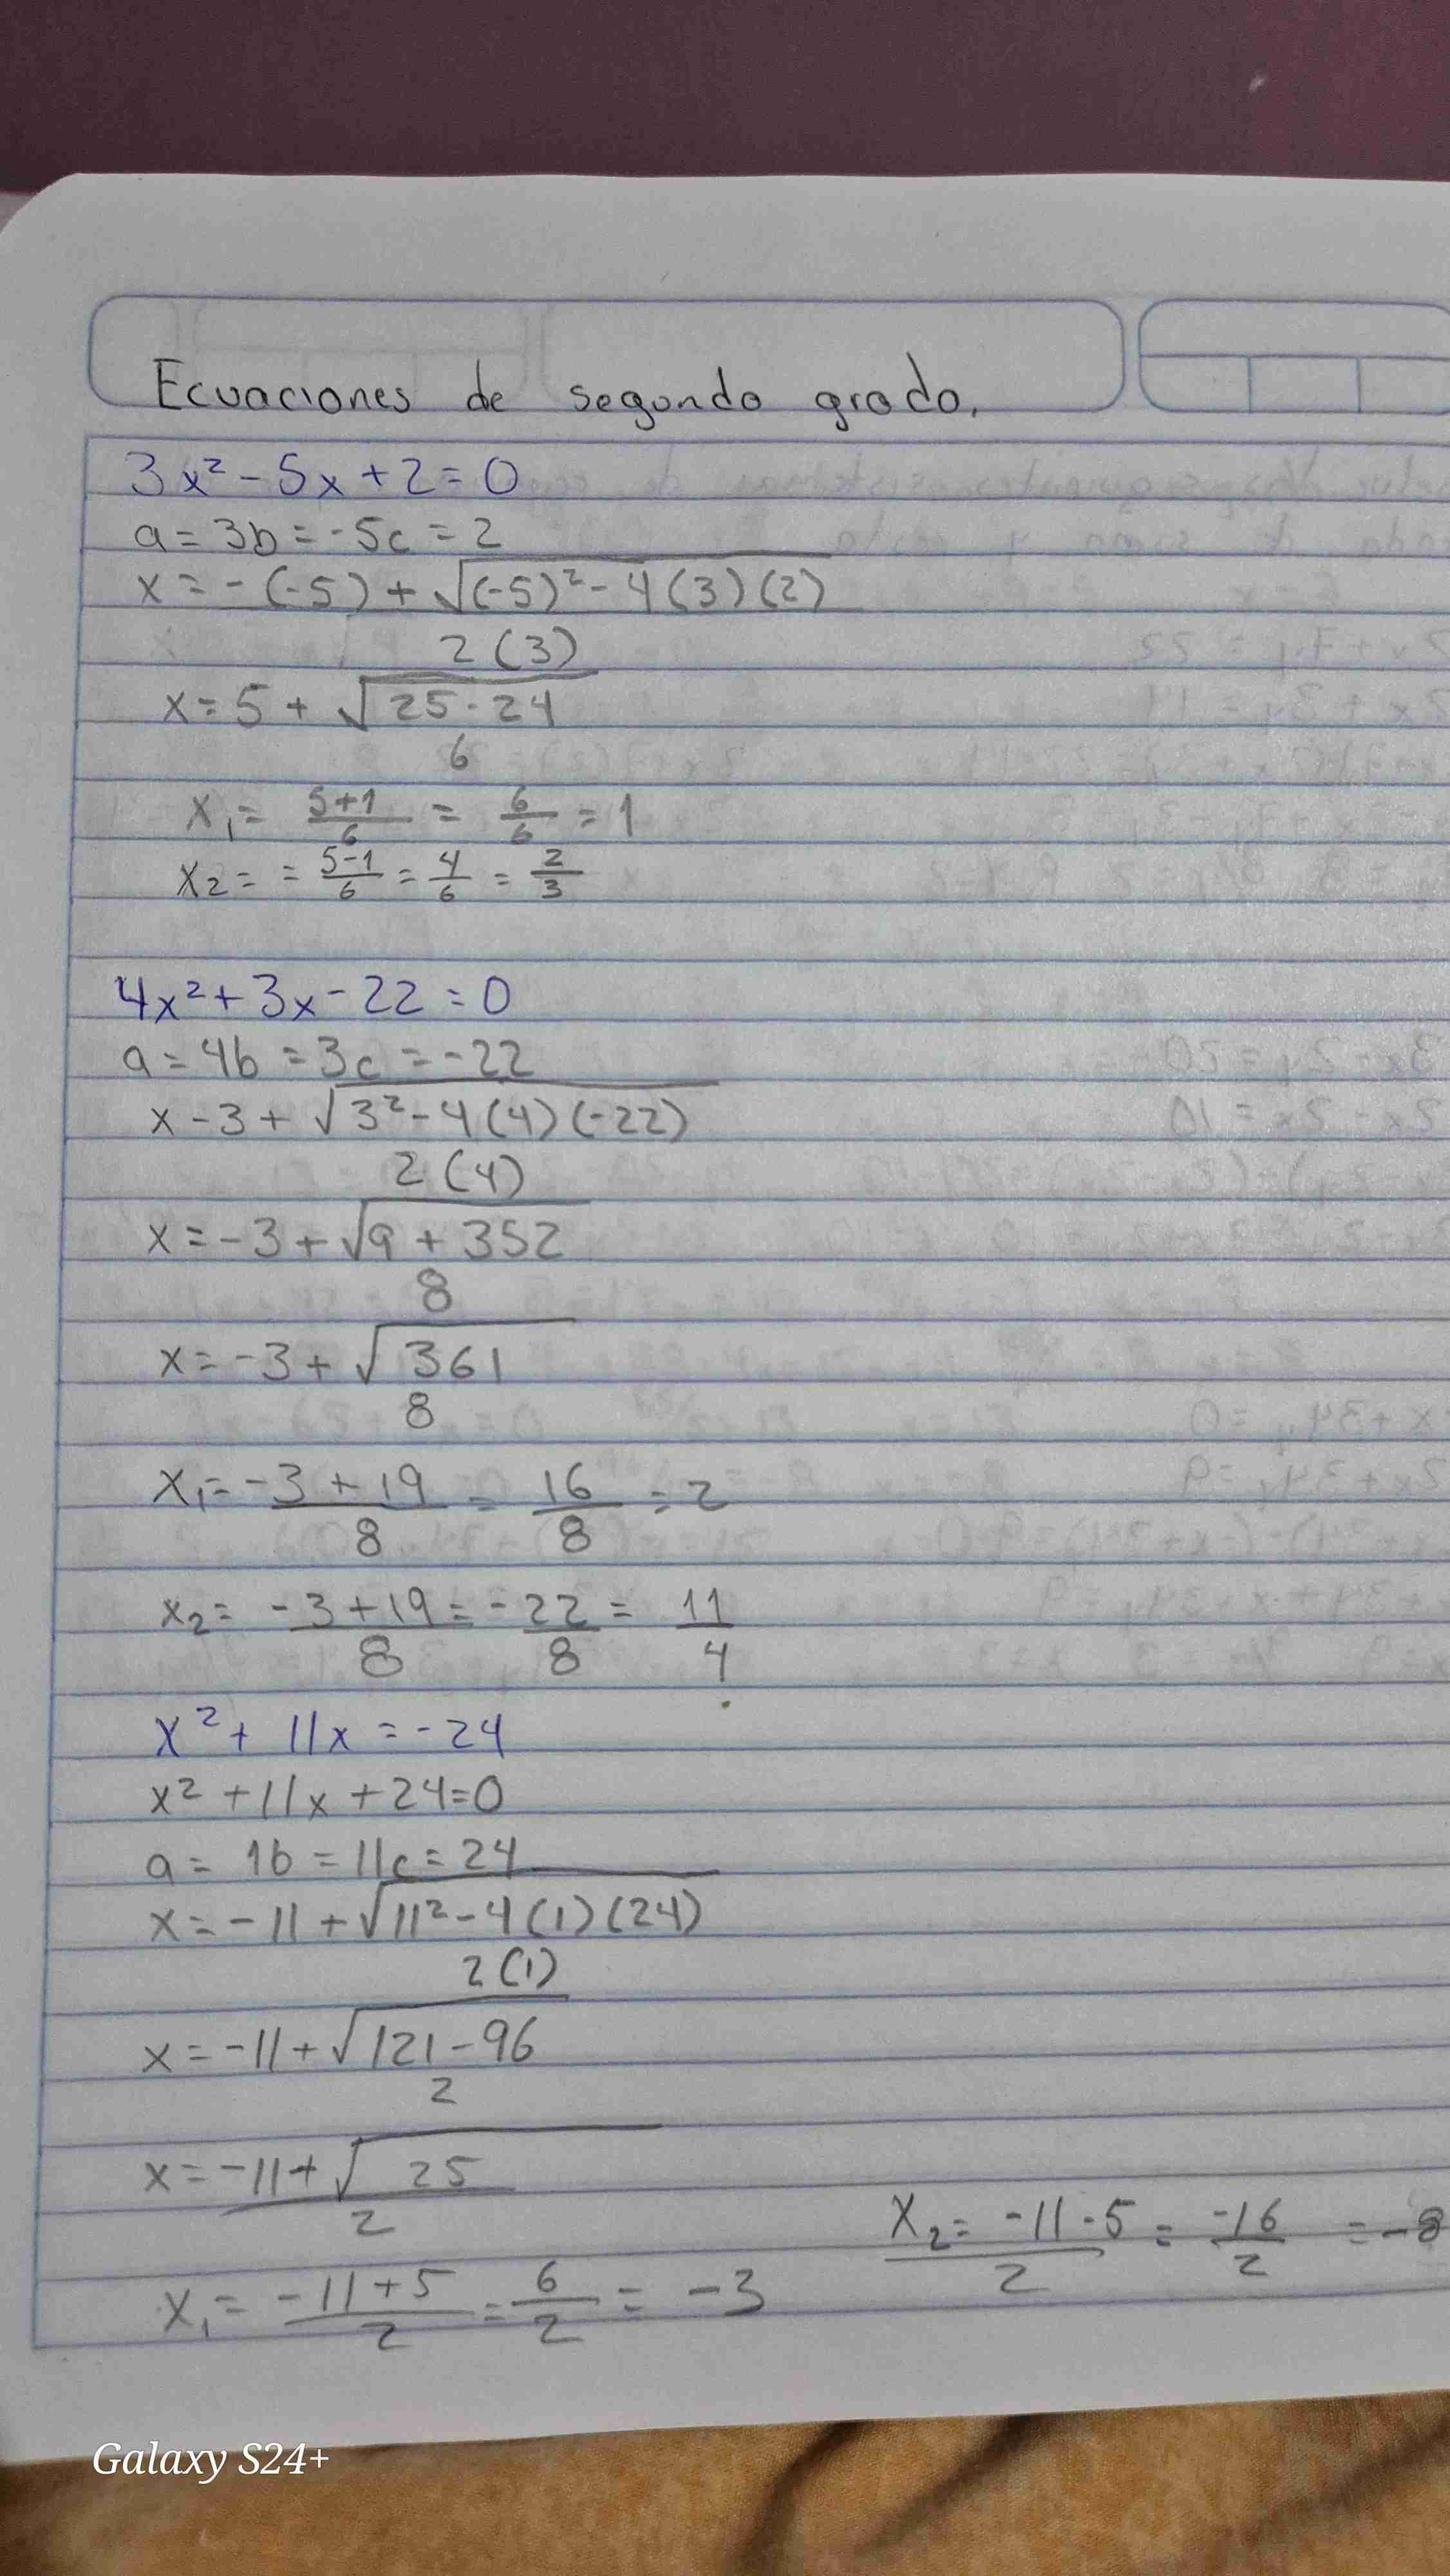 Ecuaciones de segundo grado.
3x² - 5x + 2 = 0
a = 3b = -5c = 2
x = -(-5) + √(-5)² - 4(3)(2)
2(3)
x = 5 + √25 - 24
6
x₁ = 5+1/6 = 6/6 = 1
x₂ = = 5-1/6 = 4/6 = 2/3
4x² + 3x - 22 = 0
a = 4b = 3c = -22
x - 3 + √3² - 4(4)(-22)
2(4)
x = -3 + √9 + 352
8
x = -3 + √361
8
x₁ = -3 + 19/8 = 16/8 = 2
x₂ = -3 + 19/8 = -22/8 = 11/4
x² + 11x = -24
x² + 11x + 24 = 0
a = 1b = 11c = 24
x = -11 + √11² - 4(1)(24)
2(1)
x = -11 + √121 - 96
2
x = -11 + √25
2
x₁ = -11 + 5/2 = 6/2 = -3
x₂ = -11 - 5/2 = -16/2 = -8
Galaxy S24+